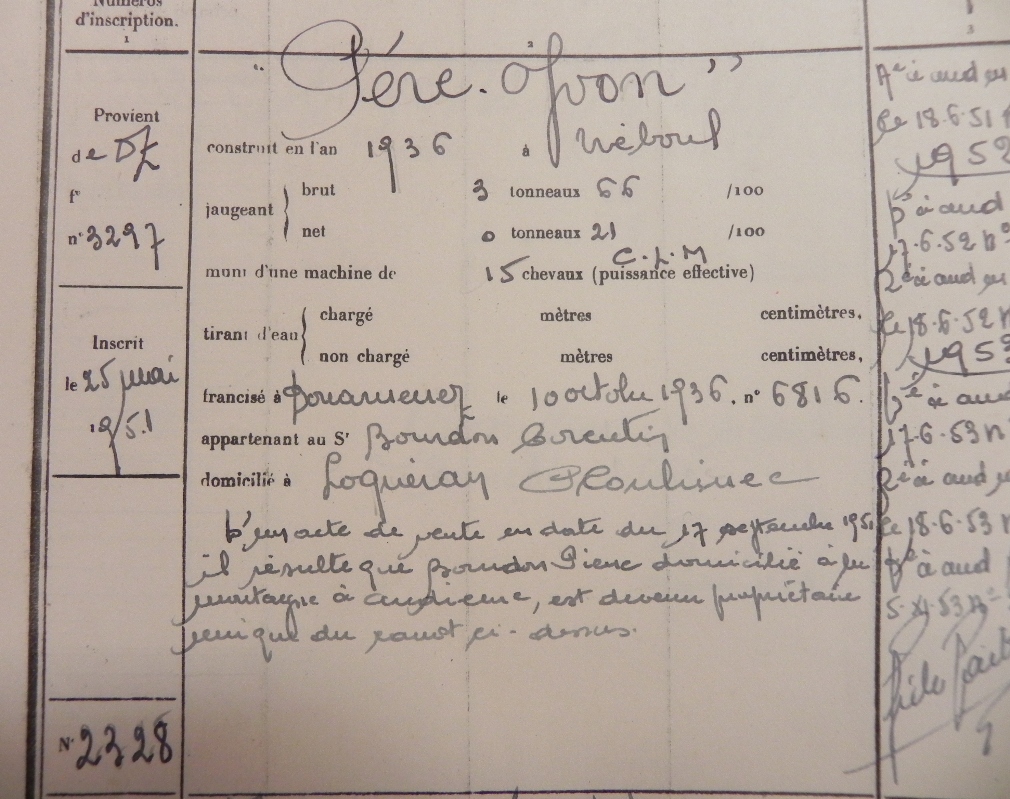 Numéros
d'inscription.
1
2
3
Provient
de DZ
f°
n° 3297
Inscrit
le 25 mai
1951
N° 2328
"Père-Yvon"
construit en l'an 1936 à Tréboul
jaugeant
brut 3 tonneaux 66 /100
net 0 tonneaux 21 /100
C.L.M
muni d'une machine de 15 chevaux (puissance effective)
tirant d'eau
chargé mètres centimètres,
non chargé mètres centimètres,
francisé à Douarnenez le 10 octobre 1936, n° 6816.
appartenant au Sr Bourdon Corentin
domicilié à Loquéran Plouhinec
D'un acte de vente en date du 17 septembre 1951
il résulte que Bourdon Pierre domicilié à la
montagne à audierne, est devenu propriétaire
unique du canot ci-dessus.
à aud
le 18.6.51
1952
à aud
17.6.52 n°
à aud
le 18.6.52 n
1953
à aud
17-6.53 n°
à aud
le 18.6.53 n
à aud